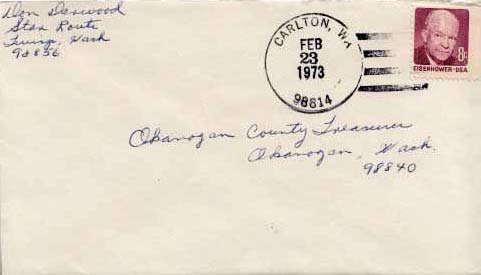 Don Derwood
Star Route
Twisp, Wash
98856
CARLTON, WA
FEB
23
1973
98814
8¢
EISENHOWER·USA
Okanogan County Treasurer
Okanogan, Wash.
98840